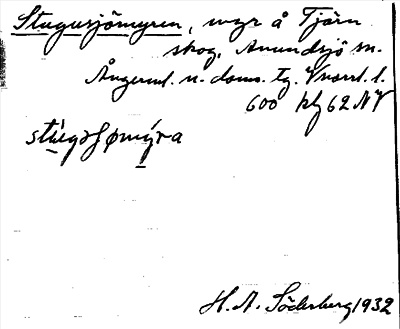 Stugusjömyren, myr å Tjärn
skog, Anundsjö sn.
Ångerml. n. doms. tg. Vnorrl. l.
600 kbl 62 NV
stúgosjømýra
H. A. Söderberg 1932